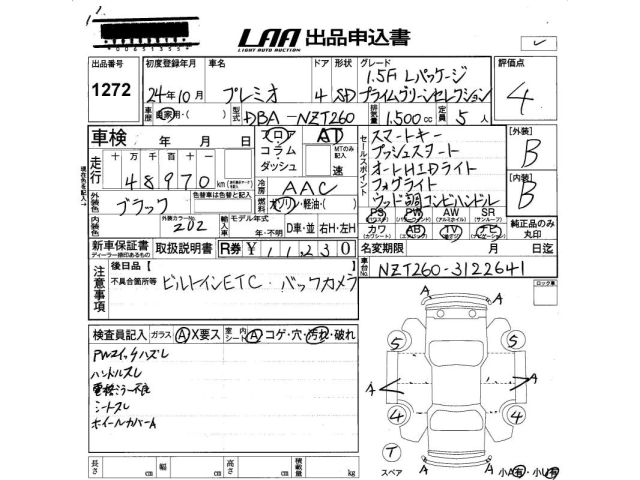 LAA 出品申込書
LIGHT AUTO AUCTION
出品番号 初度登録年月 車名 ドア 形状 グレード 評価点
1272 24年10月 プレミオ 4 SD 1.5F Lパッケージ
プライムグリーンセレクション 4
車歴 自家用・( ) 型式 DBA-NZT260 排気量 1,500cc 定員 5人
車検 年 月 日 フロア AT
コラム
ダッシュ MTのみ記入 速
セールスポイント スマートキー
プッシュスタート
オートHIDライト
フォグライト
ウッド調コンビハンドル
【外装】 B
【内装】 B
走行 十 万 千 百 十
48970 km
冷房 AAC
外装色 ブラック 色替車は色替と記入
燃料 ガソリン・軽油・( )
内装色 外装カラーNo. 202 輸入車 モデル年式 年 D車・並 右H・左H
PS PW AW SR
(パワステ) (パワーウィンド) (アルミホイル) (サンルーフ)
カワ AB TV ナビ
(レザーシート) (エアバッグ) (テレビ) (ナビゲーション)
純正品のみ
丸印
新車保証書 取扱説明書 R券 ¥11,230
ディーラー捺印あるもの
名変期限 月 日迄
車台No. NZT260-3122641
注意事項 後日品【
不具合箇所等 ビルトインETC・バックカメラ
ロック車
検査員記入 ガラス A X要ス 室内シート A コゲ・穴・汚れ・破れ
PWスイッチハズレ
ハンドルスレ
電格ミラー不良
シートスレ
ホイールカバーA
A A
5 5
A A
4 4
T
スペア
A A
小A有・小U有
長さ cm 幅 cm 高さ cm 積載量 kg